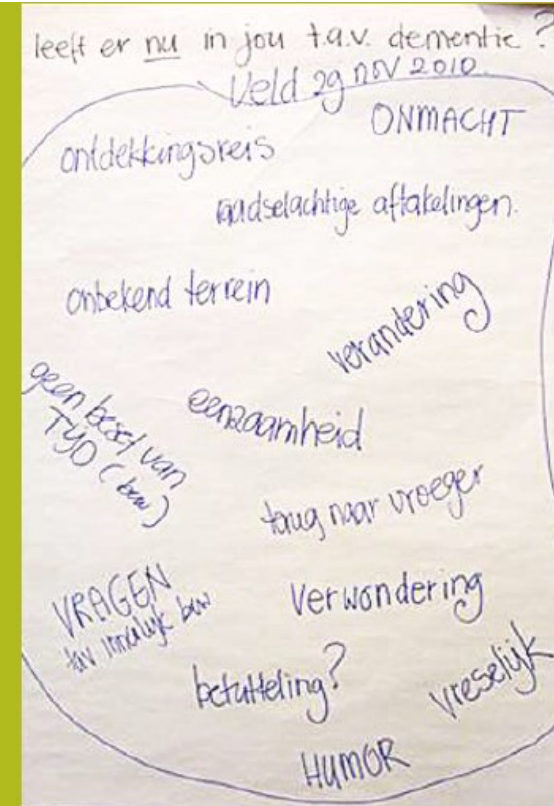 leeft er nu in jou t.a.v. dementie?
Veld 29 nov 2010
ONMACHT
ontdekkingsreis
raadselachtige aftakelingen.
onbekend terrein
verandering
geen besef van
TYD (bew)
eenzaamheid
terug naar vroeger
VRAGEN
tav innerlijk bew
Verwondering
betutteling?
vreselijk
HUMOR